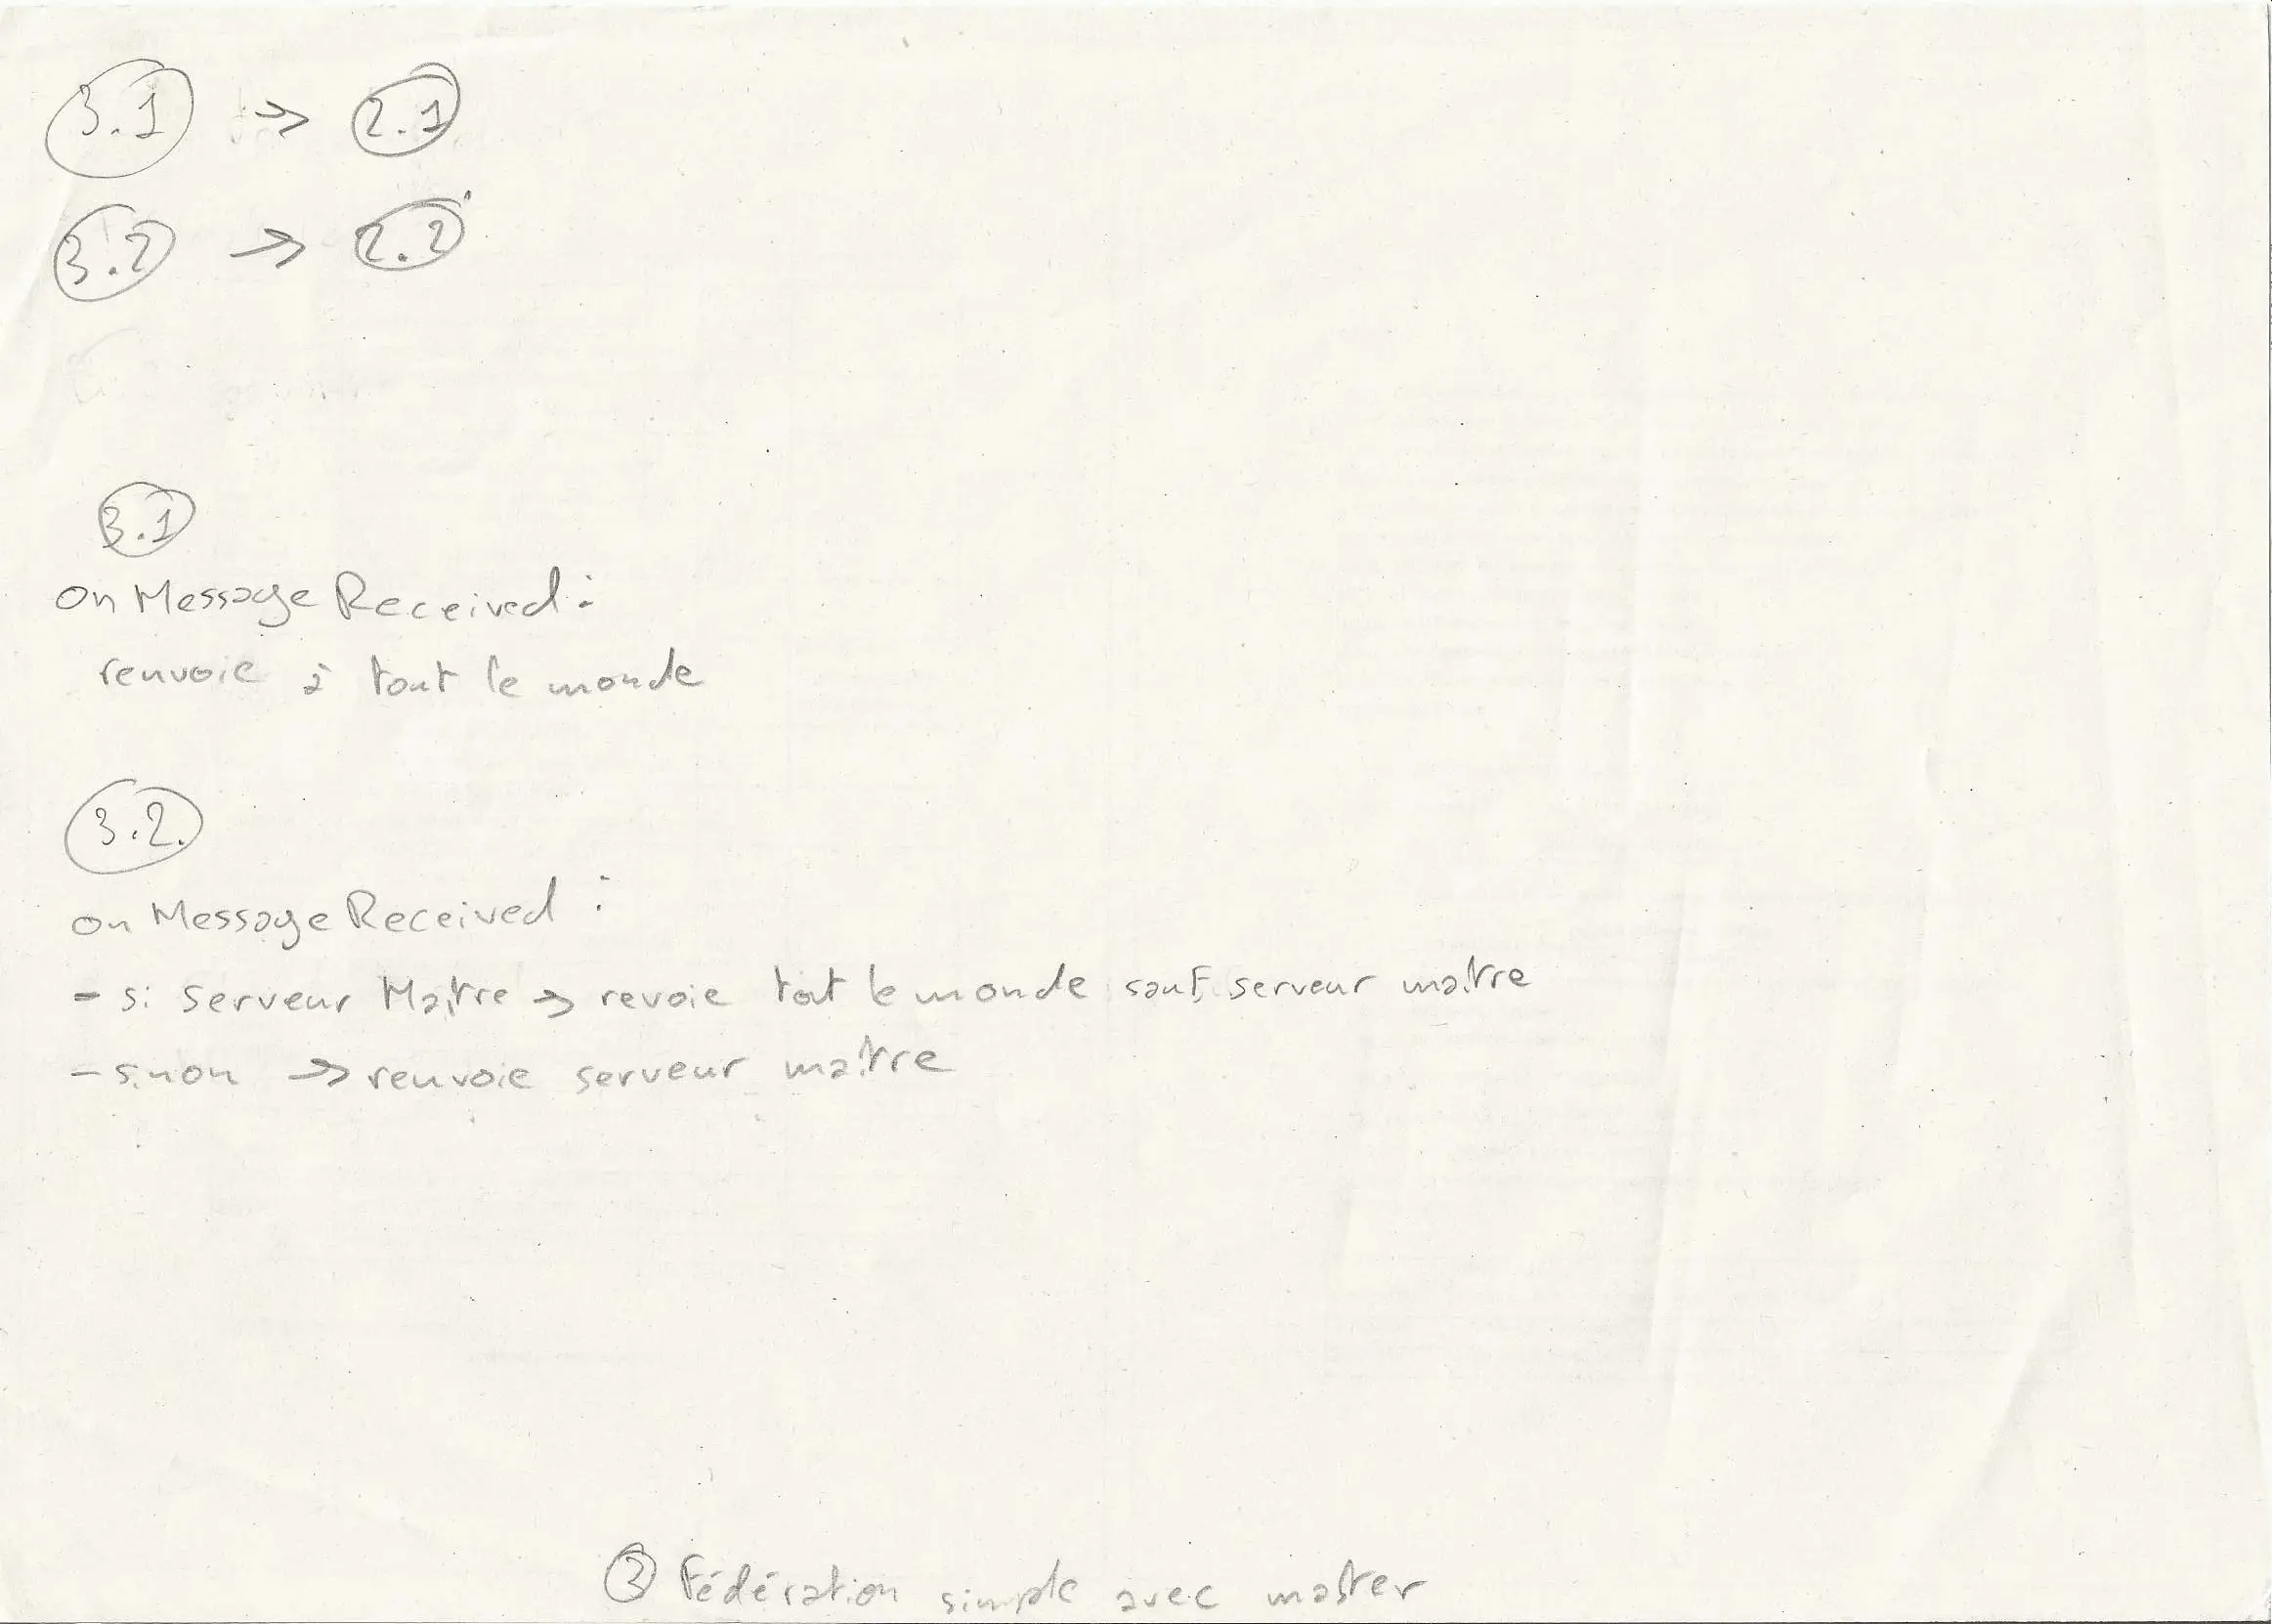 3.1 => 2.1
3.2 -> 2.2
3.1
on Message Received :
renvoie à tout le monde
3.2.
on Message Received :
- si Serveur Maître -> revoie tout le monde sauf serveur maître
- sinon -> renvoie serveur maître
3 Fédération simple avec master